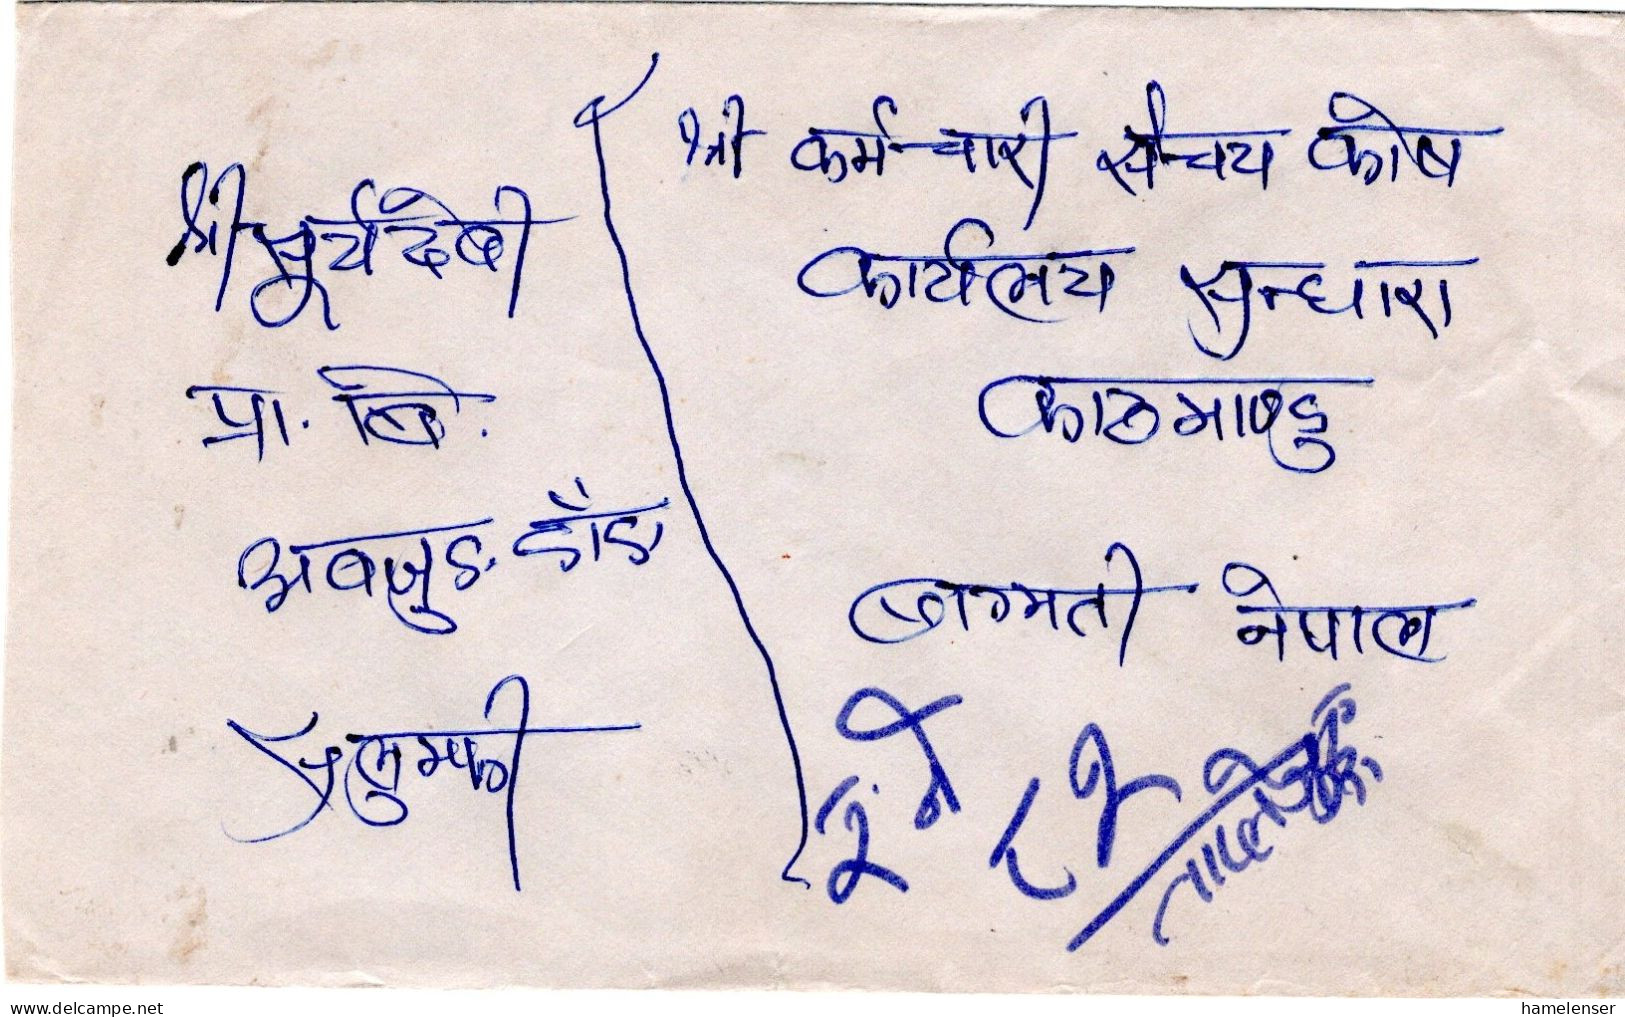 श्री सूर्यदेवी
प्रा. बि.
अबजुङ. डाँडा
श्री कर्मचारी संचय कोष
कार्यलय सुन्धारा
काठमाण्डु
बागमती नेपाल
ताप्लेजुङ्ग
www.delcampe.net
hamelenser